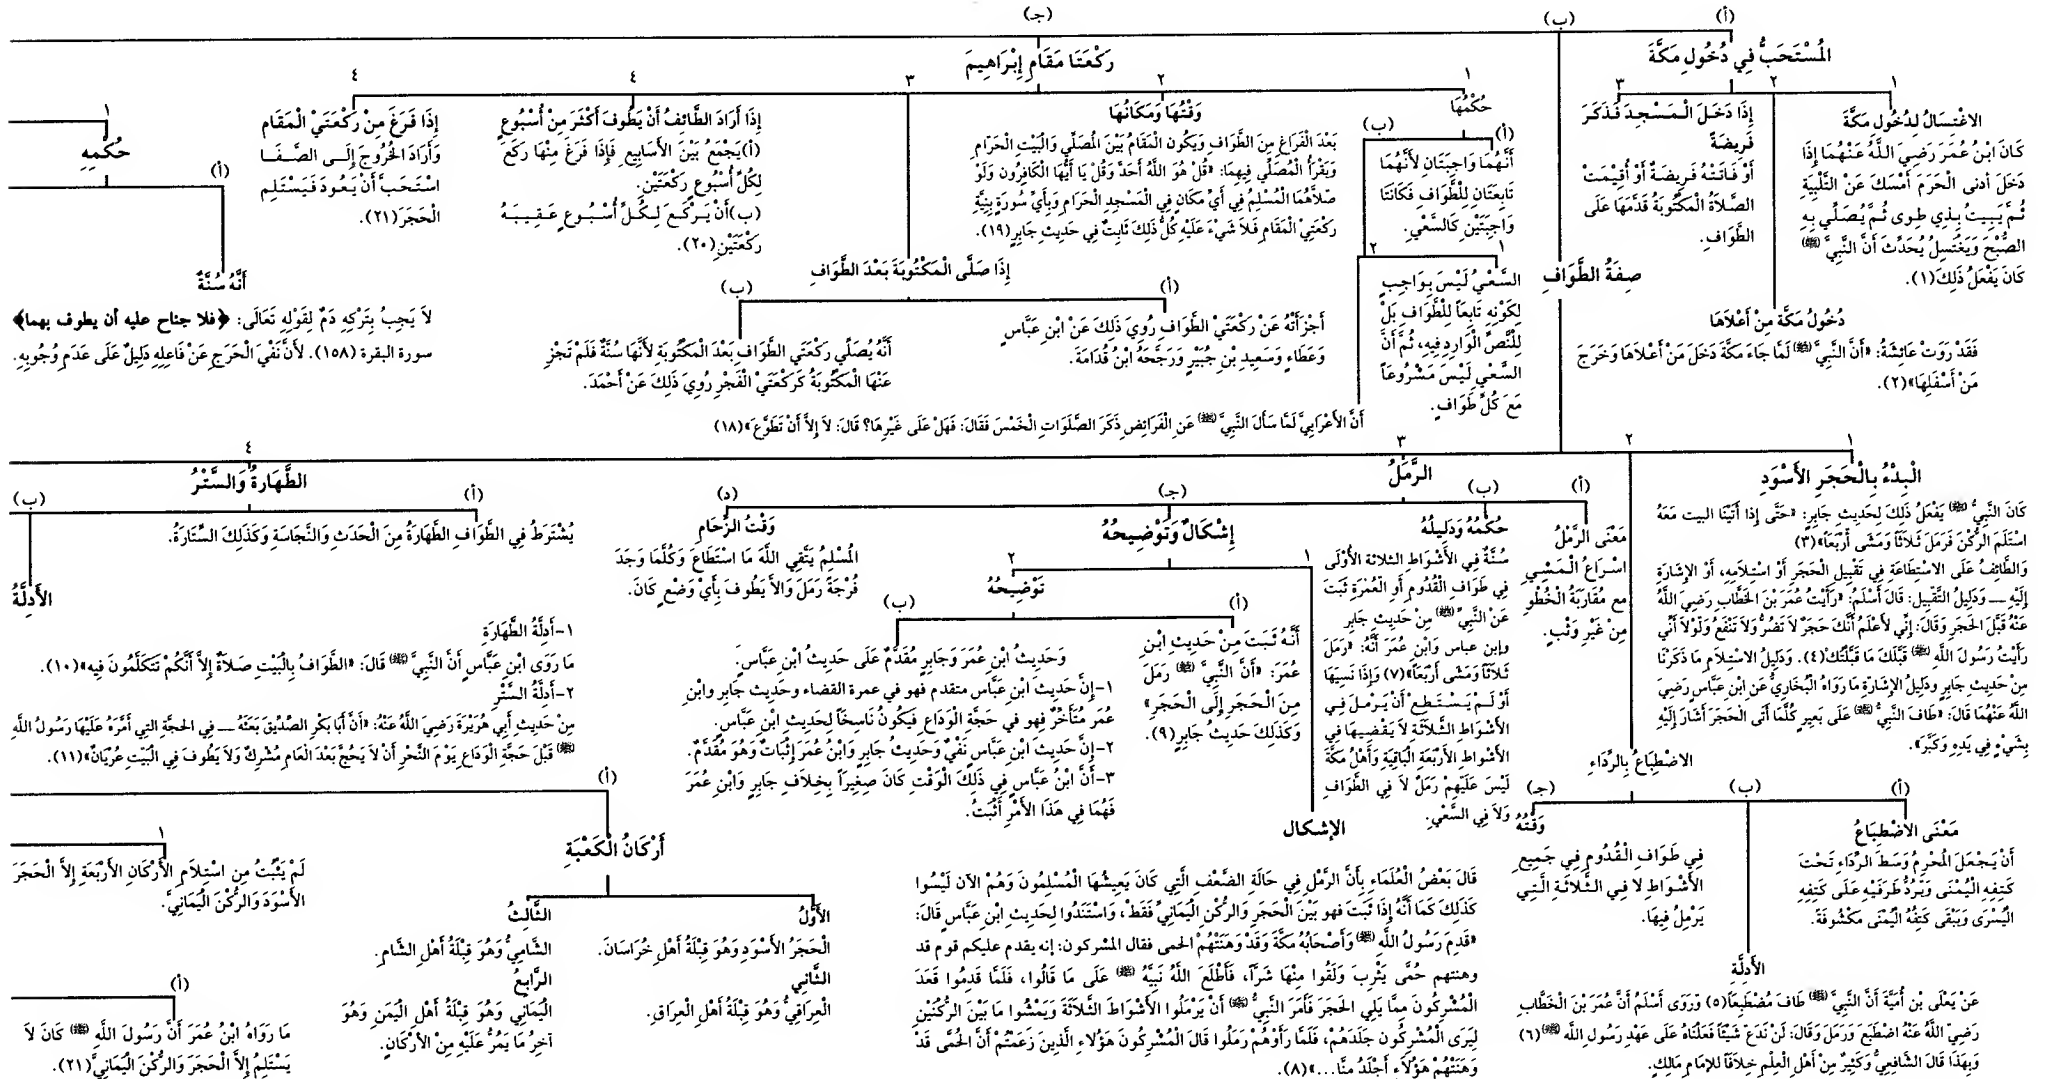 (أ)
(ب)
(جـ)
المُسْتَحَبُّ فِي دُخُولِ مَكَّةَ
١
٢
٣
الاغْتِسَالُ لِدُخُولِ مَكَّةَ
كَانَ ابْنُ عُمَرَ رَضِيَ اللَّهُ عَنْهُمَا إِذَا
دَخَلَ أدنى الْحَرَمِ أَمْسَكَ عَنْ التَّلْبِيَةِ
ثُمَّ يَبِيتُ بِذِي طِوى ثُمَّ يُصَلِّي بِهِ
الصُّبْحَ وَيَغْتَسِلُ يُحَدِّثُ أَنَّ النَّبِيَّ (ﷺ)
كَانَ يَفْعَلُ ذَلِكَ(١).
دُخُولُ مَكَّةَ مِنْ أَعْلاَهَا
فَقَدْ رَوَتْ عَائِشَةُ: «أَنَّ النَّبِيَّ (ﷺ) لَمَّا جَاءَ مَكَّةَ دَخَلَ مَنْ أَعْلاَهَا وَخَرَجَ
مَنْ أَسْفَلِهَا»(٢).
إِذَا دَخَلَ الْمَسْجِدَ فَذَكَرَ
فَرِيضَةً
أَوْ فَاتَتْهُ فَرِيضَةٌ أَوْ أُقِيمَتْ
الصَّلاَةُ المَكْتُوبَةُ قَدَّمَهَا عَلَى
الطَّوَافِ.
صِفَةُ الطَّوَافِ
رَكْعَتَا مَقَامِ إِبْرَاهِيمَ
١
٢
٣
٤
٤
حُكْمُهَا
(أ)
(ب)
أَنَّهُمَا وَاجِبَتَانِ لأَنَّهُمَا
تَابِعَتَانِ لِلْطَّوَافِ فَكَانَتَا
وَاجِبَتَيْنِ كَالسَّعْيِ.
١
٢
السَّعْيُ لَيْسَ بِوَاجِبٍ
لِكَوْنِهِ تَابِعَاً لِلْطَّوَافِ بَلْ
لِلْنَّصِّ الْوَارِدِ فِيهِ، ثُمَّ أَنَّ
السَّعْي لَيْسَ مَشْرُوعَاً
مَعَ كُلِّ طَوَافٍ.
أَنَّ الأَعْرَابِيَّ لَمَّا سَأَلَ النَّبِيَّ (ﷺ) عَنِ الْفَرَائِضِ ذَكَرَ الصَّلَوَاتِ الْخَمْسَ فَقَالَ: فَهَلْ عَلَى غَيْرِهَا؟ قَالَ: لاَ إِلاَّ أَنْ تَطَوَّعَ»(١٨)
وَقْتُهَا وَمَكَانُهَا
بَعْدَ الْفَرَاغِ مِنَ الطَّوَافِ وَيَكُون الْمَقَامُ بَيْنَ المُصَلِّي وَالْبَيْتِ الْحَرَامِ
وَيَقْرَأُ الْمُصَلِّي فِيهِمَا: «قُلْ هُوَ اللَّهُ أَحَدٌ وَقُلْ يَا أَيُّهَا الْكَافِرُون وَلَوْ
صَلاَّهُمَا الْمُسْلِمُ فِي أَيِّ مَكَانٍ فِي الْمَسْجِدِ الْحَرَامِ وَبِأَيِّ سُورَةٍ بِنِيَّةِ
رَكْعَتَيِ الْمَقَامِ فَلاَ شَيْءَ عَلَيْهِ كُلُّ ذَلِكَ ثَابِتٌ فِي حَدِيثِ جَابِرٍ(١٩).
إِذَا صَلَّى الْمَكْتُوبَةَ بَعْدَ الطَّوَافِ
(أ)
(ب)
أَجْزَأَتْهُ عَنْ رَكْعَتَيِ الطَّوَافِ رُوِيَ ذَلِكَ عَنْ ابْنِ عَبَّاسٍ
وَعَطَاءٍ وَسَعِيدِ بْنِ جُبَيْرٍ وَرَجَّحَهُ ابْنُ قُدَامَةَ.
أَنَّهُ يُصَلِّي رَكْعَتَيِ الطَّوَافِ بَعْدَ الْمَكْتُوبَةِ لأَنَّهَا سُنَّةٌ فَلَمْ تَجْزِ
عَنْهَا الْمَكْتُوبَةُ كَرَكْعَتَيْ الْفَجْرِ رُوِيَ ذَلِكَ عَنْ أَحْمَدَ.
إِذَا أَرَادَ الطَّائِفُ أَنْ يَطُوفَ أَكْثَرَ مِنْ أُسْبُوعٍ
(أ)يَجْمَعُ بَيْنَ الأَسَابِيعِ فَإِذَا فَرَغَ مِنْهَا رَكَعَ
لِكُلِّ أُسْبُوعٍ رَكْعَتَيْنِ.
(ب)أَنْ يَرْكَعَ لِكُلِّ أُسْبُوعٍ عَقِيبَهُ
رَكْعَتَيْنِ(٢٠).
إِذَا فَرَغَ مِنْ رَكْعَتَيْ الْمَقَامِ
وَأَرَادَ الخُرُوجَ إِلَى الصَّفَا
اسْتَحَبَّ أَنْ يَعُودَ فَيَسْتَلِمِ
الْحَجَرَ(٢١).
١
حُكْمُهِ
(أ)
أَنَّهُ سُنَّةٌ
لاَ يَجِبُ بِتَرْكِهِ دَمٌ لِقَوْلِهِ تَعَالَى: ﴿فلا جناح عليه أن يطوف بهما﴾
سورة البقرة (١٥٨). لأَنَّ نَفْيَ الْحَرَجِ عَنْ فَاعِلِهِ دَلِيلٌ عَلَى عَدَمِ وُجُوبِهِ.
١
٢
٣
٤
الْبِدْءُ بِالْحَجَرِ الأَسْوَدِ
كَانَ النَّبِيُّ (ﷺ) يَفْعَلُ ذَلِكَ لِحَدِيثِ جَابِرٍ: «حَتَّى إِذَا أَتَيْنَا البيت مَعَهُ
اسْتَلَمَ الرُّكْنَ فَرَمَلَ ثَلاَثَاً وَمَشَى أَرْبَعَاً»(٣)
وَالطَّائِفُ عَلَى الاسْتِطَاعَةِ فِي تَقْبِيلِ الْحَجَرِ أَوْ اسْتِلاَمِهِ، أَوْ الإِشَارَةِ
إِلَيْهِ ــ وَدَلِيلُ التَّقْبِيلِ: قَالَ أَسْلَمُ: «رَأَيْتُ عُمَرَ بْنَ الْخَطَّابِ رَضِيَ اللَّهُ
عَنْهُ قَبَّلَ الْحَجَرِ وَقَالَ: إِنِّي لأَعْلَمُ أَنَّكَ حَجَرٌ لاَ تَضُرُّ وَلاَ تَنْفَعُ وَلَوْلاَ أَنِّي
رَأَيْتُ رَسُولَ اللَّهِ (ﷺ) قَبَّلَكَ مَا قَبَّلْتُكْ»(٤). وَدَلِيلُ الاسْتِلاَمِ مَا ذَكَرْنَا
مِنْ حَدِيثِ جَابِرٍ وَدَلِيلُ الإِشَارَةِ مَا رَوَاهُ الْبُخَارِيُّ عَنِ ابْنِ عَبَّاسٍ رَضِيَ
اللَّهُ عَنْهُمَا قَالَ: «طَافَ النَّبِيُّ (ﷺ) عَلَى بَعِيرٍ كُلَّمَا أَتَى الْحَجَرَ أَشَارَ إِلَيْهِ
بِشَيْءٍ فِي يَدِهِ وَكَبَّرَ».
الاضْطِبَاعُ بِالرِّدَاءِ
(أ)
(ب)
(جـ)
مَعْنَى الاضْطِبَاعُ
أَنْ يَجْعَلَ المُحْرِمُ وَسَطَ الرِّدَاءِ تَحْتَ
كَتِفِهِ الْيُمْنَى وَيَرُدُّ طَرَفَيْهِ عَلَى كَتِفِهِ
الْيُسْرَى وَيَبْقَى كَتِفُهُ الْيُمْنَى مَكْشُوفَةً.
الأَدِلَّةِ
عَنْ يَعْلَى بْنِ أُمَيَّةَ أَنَّ النَّبِيَّ (ﷺ) طَافَ مُضْطَبِعَاً(٥) وَرَوَى أَسْلَمُ أَنَّ عُمَرَ بْنَ الْخَطَّابِ
رَضِيَ اللَّهُ عَنْهُ اضْطَبَعَ وَرَمَلَ وَقَالَ: لَنْ نَدَعَ شَيْئَاً فَعَلْنَاهُ عَلَى عَهْدِ رَسُولِ اللَّه (ﷺ)(٦)
وَبِهَذَا قَالَ الشَّافِعِيُّ وَكَثِيْرٌ مِنْ أَهْلِ الْعِلْمِ خِلاَفَاً للإمَامِ مَالِكٍ.
وَقْتُهُ
فِي طَوَافِ الْقُدُومِ فِي جَمِيعِ
الأَشْوَاطِ لا فِي الثَّلاَثَةِ الَّتِي
يَرْمِلُ فِيهَا.
الرَّمَلُ
(أ)
(ب)
(جـ)
(د)
مَعْنَى الرَّمْلُ
اسْرَاعُ الْمَشْيِ
مع مُقَارَبَةُ الْخُطُوِ
مِنْ غَيْرِ وَثْبٍ.
حُكْمُهُ وَدَلِيلُهُ
سُنَّةٌ فِي الأَشْوَاطِ الثلاثة الأُوْلَى
فِي طَوَافِ الْقُدُومِ أَوِ الْعُمْرَةِ ثَبَتَ
عَنْ النَّبِيِّ (ﷺ) مِنْ حَدِيثِ جَابِرِ
وابن عباس وَابْنِ عُمَرَ أَنَّهُ: «رَمَلَ
ثَلاَثَاً وَمَشَى أَرْبَعَاً»(٧) وَإِذَا نَسِيَهَا
أَوْ لَمْ يَسْتَطِعْ أَنْ يَرْمَلَ فِي
الأَشْوَاطِ الثَّلاَثَةِ لاَ يَقْضِيهَا فِي
الأَشْوَاطِ الأَرْبَعَةِ الْبَاقِيَةِ وَأَهْلُ مَكَّةَ
لَيْسَ عَلَيْهِمْ رَمَلٌ لاَ فِي الطَّوَافِ
وَلاَ فِي السَّعْيِ.
إِشْكَالٌ وَتَوْضِيحُهُ
١
٢
الإشكال
قَالَ بَعْضُ الْعُلَمَاءِ بِأَنَّ الرَّمْلَ فِي حَالَةِ الضَّعْفِ الَّتِي كَانَ يَعِيشُهَا الْمُسْلِمُونَ وَهُمْ الآنَ لَيْسُوا
كَذَلِكَ كَمَا أَنَّهُ إِذَا ثَبَتَ فهو بَيْنَ الْحَجَرِ وَالرُّكْنِ الْيَمَانِيِّ فَقَطْ، وَاسْتَنَدُوا لِحَدِيثِ ابْنِ عَبَّاسٍ قَالَ:
«قَدِمَ رَسُولُ اللَّهِ (ﷺ) وَأَصْحَابُهُ مَكَّةَ وَقَدْ وَهَنَتْهُمْ الحمى فقال المشركون: إنه يقدم عليكم قوم قد
وهنتهم حُمَّى يَثْرِبَ وَلَقُوا مِنْهَا شَرَّاً، فَأَطْلَعَ اللَّهُ نَبِيَّهُ (ﷺ) عَلَى مَا قَالُوا، فَلَمَّا قَدِمُوا قَعَدَ
الْمُشْرِكُونَ مِمَّا يَلِي الْحَجَرَ فَأَمَرَ النَّبِيُّ (ﷺ) أَنْ يَرْمَلُوا الأَشْوَاطَ الثَّلاَثَةَ وَيَمْشُوا مَا بَيْنَ الرُّكْنَيْنِ
لِيَرَى الْمُشْرِكُونَ جَلَدَهُمْ، فَلَمَّا رَأَوْهُمْ رَمَلُوا قَالَ الْمُشْرِكُونَ هَؤُلاَءِ الَّذِينَ زَعَمْتُمْ أَنَّ الْحُمَّى قَدْ
وَهَنَتْهُمْ هَؤُلاَءِ أَجْلَدُ مِنَّا...»(٨).
تَوْضِيحُهُ
(أ)
(ب)
أَنَّهُ ثَبَتَ مِنْ حَدِيثِ ابْنِ
عُمَرَ: «أَنَّ النَّبِيَّ (ﷺ) رَمَلَ
مِنَ الْحَجَرِ إِلَى الْحَجَرِ»
وَكَذَلِكَ حَدِيثُ جَابِرٍ(٩).
وَحَدِيثُ ابْنِ عُمَرَ وَجَابِرٍ مُقَدَّمٌ عَلَى حَدِيثِ ابْنِ عَبَّاسٍ.
١-إِنَّ حَدِيث ابْنِ عَبَّاسٍ متقدم فهو في عمرة القضاء وحديث جَابِرٍ وابْنِ
عُمَرَ مُتَأَخِّرٌ فهو في حَجَّةِ الْوَدَاعِ فَيَكُونُ نَاسِخَاً لِحَدِيثِ ابْنِ عَبَّاسٍ.
٢-إِنَّ حَدِيثَ ابْنِ عَبَّاسٍ نَفْيٌ وَحَدِيثُ جَابِرٍ وَابْنُ عُمَرَ إِثْبَاتٌ وَهُوَ مُقَدَّمٌ.
٣-أَنَّ ابْنُ عَبَّاسٍ فِي ذَلِكَ الْوَقْتِ كَانَ صَغِيرَاً بِخِلاَفِ جَابِرٍ وَابْنِ عُمَرَ
فَهُمَا فِي هَذَا الأَمْرِ أَثْبَتُ.
وَقْتُ الزِّحَامِ
الْمُسْلِمُ يَتَّقِي اللَّهَ مَا اسْتَطَاعَ وَكُلَّمَا وَجَدَ
فُرْجَةً رَمَلَ وَالاَّ يَطُوف بِأَيْ وَضْعٍ كَانَ.
الطَّهَارَةُ وَالسَّتْرُ
(أ)
(ب)
يُشْتَرَطُ فِي الطَّوَافِ الطَّهَارَةُ مِنَ الْحَدَثِ وَالنَّجَاسَةِ وَكَذَلِكَ السِّتَارَةُ.
الأَدِلَّةُ
١-أَدِلَّةُ الطَّهَارَةِ
مَا رَوَى ابْنِ عَبَّاسٍ أَنَّ النَّبِيَّ (ﷺ) قَالَ: «الطَّوَافُ بِالْبَيْتِ صَلاَةٌ إِلاَّ أَنَّكُمْ تَتَكَلَّمُونَ فِيهِ»(١٠).
٢-أَدِلَّةُ السَّتْرِ
مِنْ حَدِيثِ أَبِي هُرَيْرَةَ رَضِيَ اللَّهُ عَنْهُ: «أَنَّ أَبَا بَكْرٍ الصِّدِّيقَ بَعَثَهُ ــ فِي الحجَّةِ التي أَمَّرَهُ عَلَيْهَا رَسُولُ اللَّهِ
(ﷺ) قَبْلَ حَجَّةِ الْوَدَاعِ يَوْمَ النَّحْرِ أَنْ لاَ يَحُجَّ بَعْدَ الْعَامِ مُشْرِكٌ وَلاَ يَطُوف فِي الْبَيْتِ عُرْيَانٌ»(١١).
(أ)
أَرْكَانُ الْكَعْبَةِ
الأَوَّلُ
الْحَجَرُ الأَسْوَدِ وَهُوَ قِبْلَةُ أَهْلِ خُرَاسَانَ.
الثَّانِي
الْعِرَاقِيُّ وَهُوَ قِبْلَةُ أَهْلِ الْعِرَاقِ.
الثَّالِثُ
الشَّامِيُّ وَهُوَ قِبْلَةُ أَهْلِ الشَّامِ.
الرَّابِعُ
الْيَمَانِيُّ وَهُوَ قِبْلَةُ أَهْلِ الْيَمَنِ وَهُوَ
آخِرُ مَا يَمُرُّ عَلَيْهِ مِنْ الأَرْكَانِ.
١
لَمْ يَثْبُتُ مِن اسْتِلاَمِ الأَرْكَانِ الأَرْبَعَةِ إِلاَّ الْحَجَرَ
الأَسْوَدَ وَالرُّكْنَ الْيَمَانِيَّ.
(أ)
مَا رَوَاهُ ابْنُ عُمَرَ أَنَّ رَسُولَ اللَّهِ (ﷺ) كَانَ لاَ
يَسْتَلِمُ إِلاَّ الْحَجَرَ وَالرُّكْنَ الْيَمَانِيَّ(٢١).